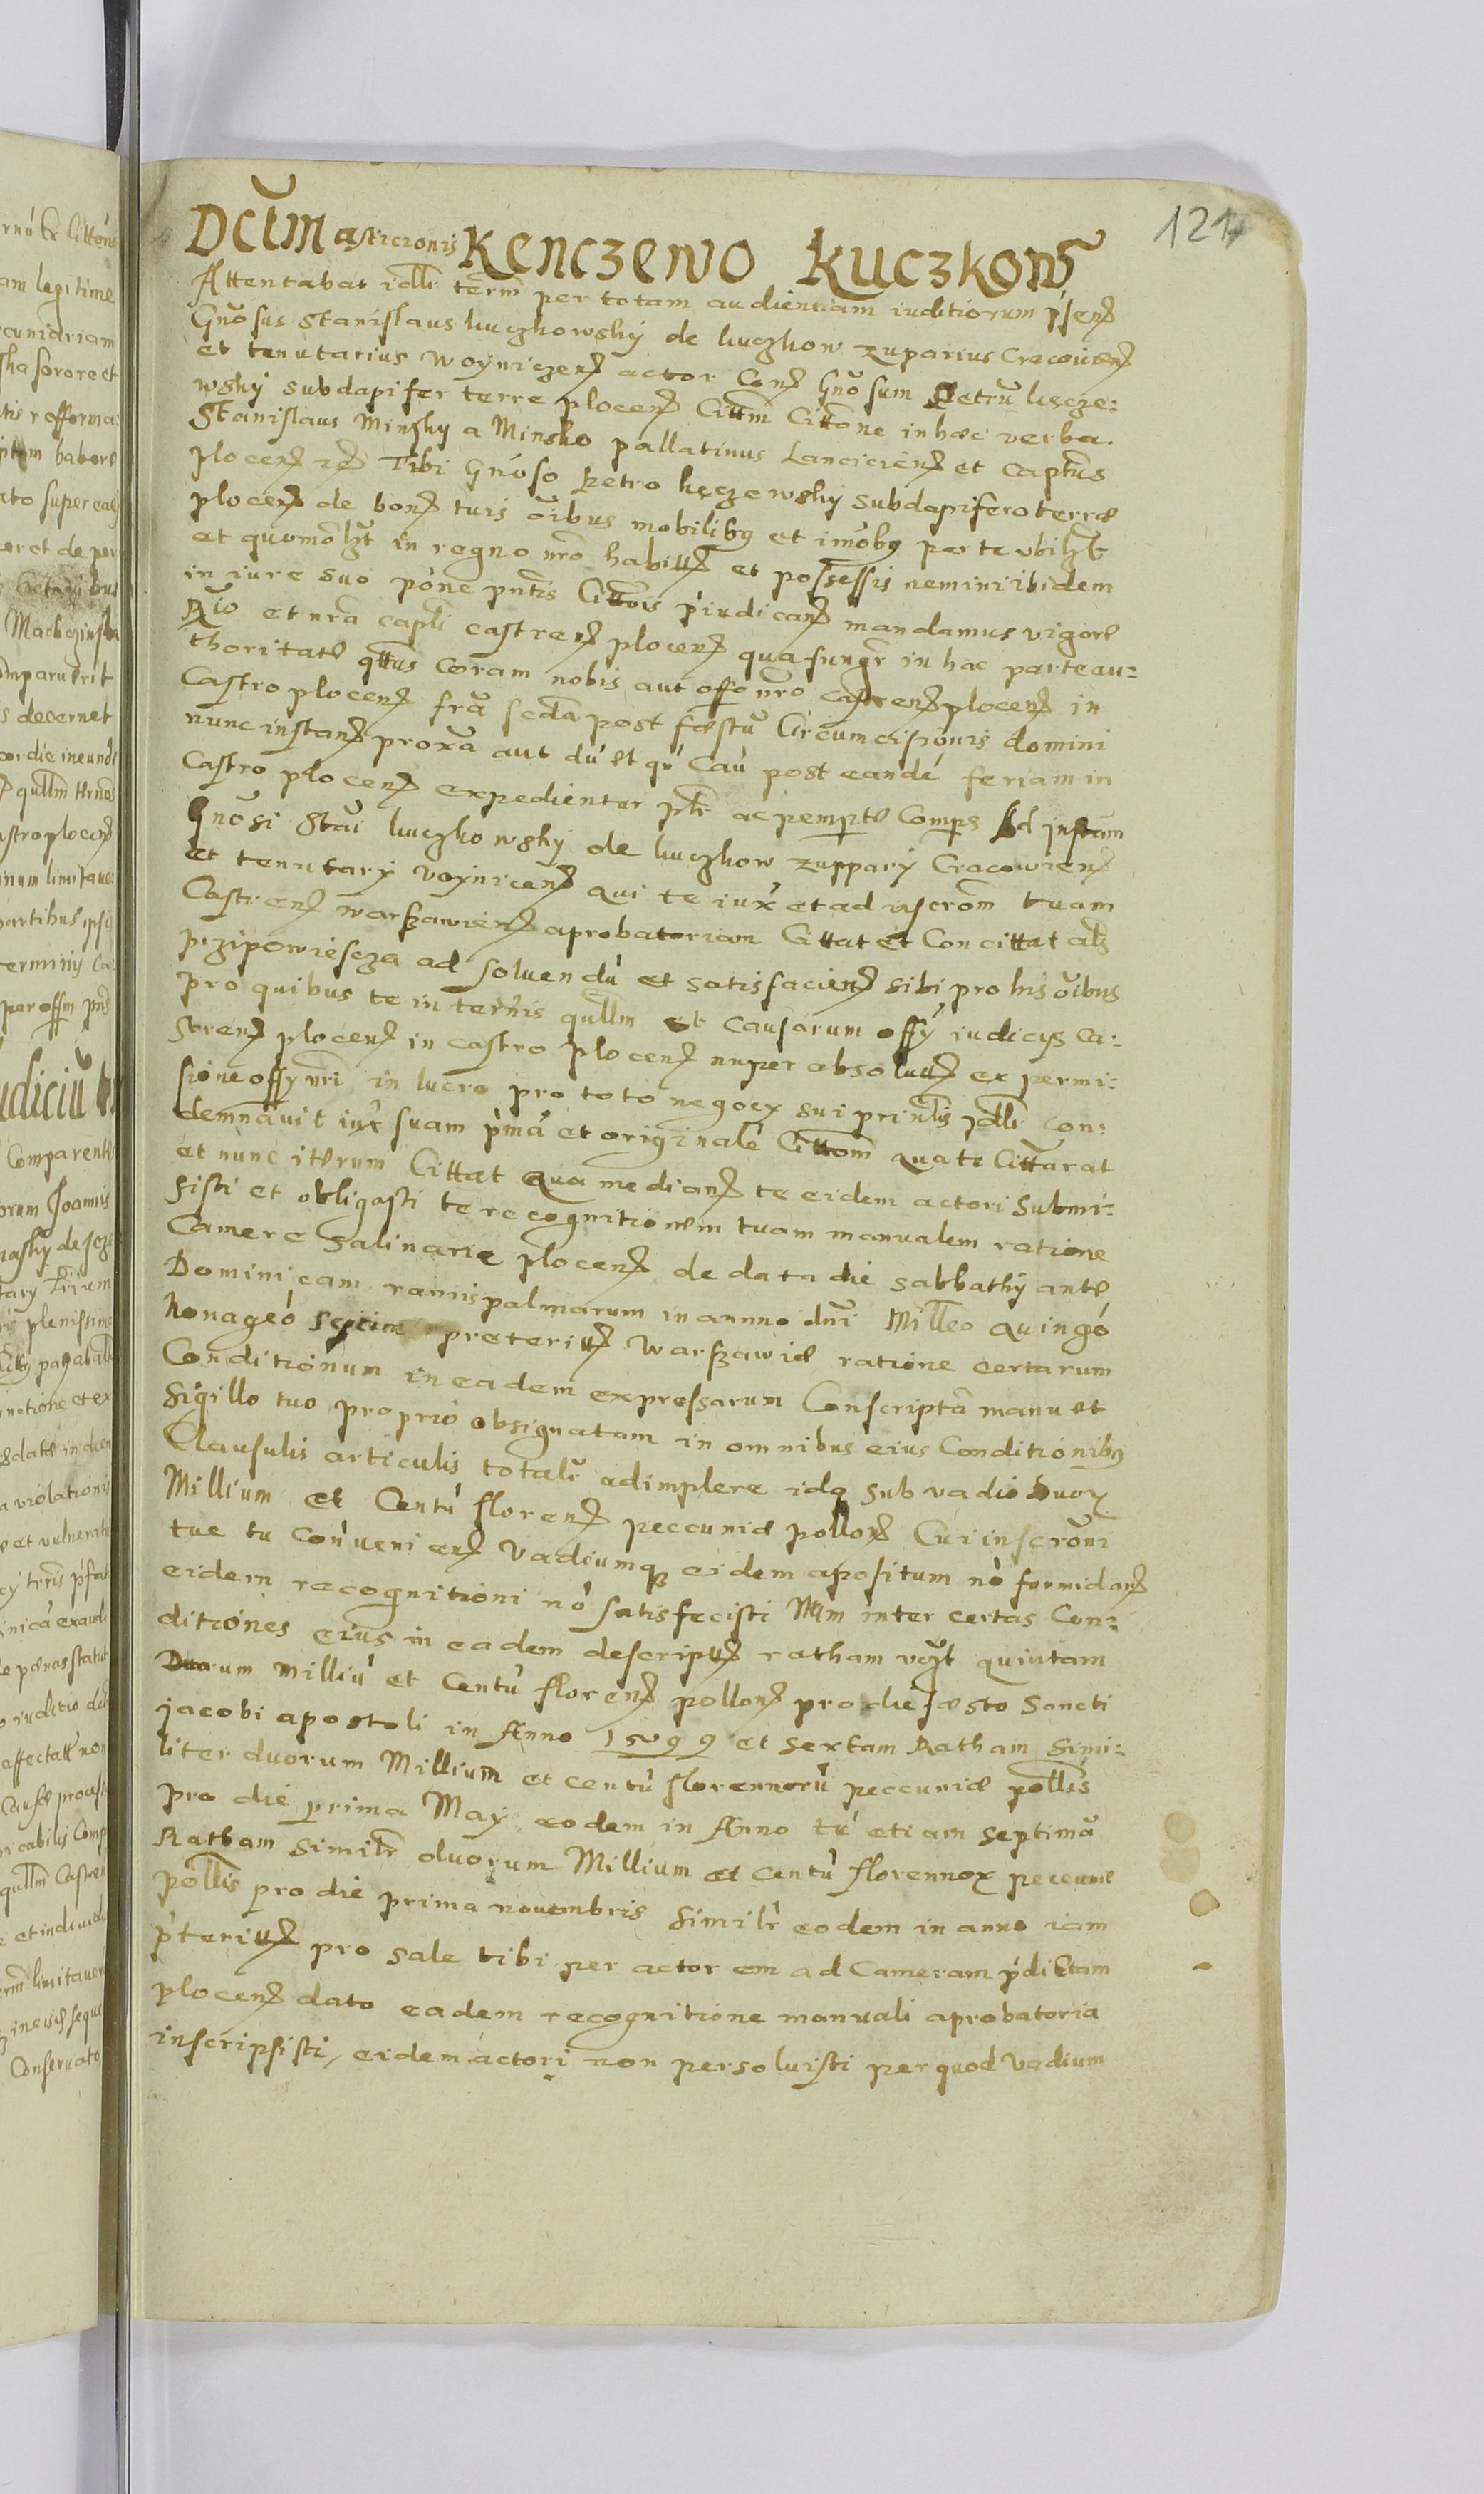 121
Dctm asticionis Kenczewo Kuczkows
Attentabat idle term per totam audientiam iuditiorum psens
Gnosus Stanislaus kuczkowsky de kuczkow zuparius Cracouiens
et tenutarius woyniczens actor Cons Gnosum Petru kęcze:
wsky subdapifer terre plocens Cittm Cittone in hæc verba.
Stanislaus Minsky a Minsko pallatinus Lanciciens et Captus
plocens Tibi Gnoso Petro kęczewsky subdapifero terræ
plocens de bons tuis oibus mobilibq et imobq per te vbilzt
et quomolzt in regno nro habitts et possessis nemini ibidem
in iure suo pone pntis Cittois piudicans mandamus vigore
Rio et nra capli castrens plocens qua fungr in hac parte au:
thoritate qttus coram nobis aut offo nro castrens plocens in
Castro plocens fra scda post fæstu Circumcisionis domini
nunc instans proxa aut du et qu Cau post eande feriam in
Castro plocens expedientur ptr ac pempte Comps Ad instam
Gnosi Stai kuczkowsky de kuczkow zuppary Cracowiens
et tenutary voynicens qui te iux et ad inscrom tuam
Castrens warszawiens aprobatoriam Cittat et Concittat als
przipowiescza ad soluendu et satisfaciens sibi pro his oibus
pro quibus te in termis qullm et causarum offy iudicys ca:
strens plocens in castro plocens nuper absolutts ex permi:
sione offy nri in lucro pro toto negocy sui prinlis idle con:
demnauit iux suam pma et originale Cittom qua te Cittarat
et nunc iterum Cittat Qua medians te eidem actori submi:
sisti et obligasti te recognitionem tuam manualem ratione
Camere salinarie plocens de data die sabbathy ante
Dominicam ramispalmarum in annno dni Milleo quingo
Nonageo septimo preteritts warszawiæ ratione certarum
Conditionum in eadem expressarum Conscripta manu et
sigillo tuo proprio obsignatam in omnibus eius Conditionibq
Clausulis articulis totalr adimplere idq sub vadio Duox
Millium et Centu florens peccuniæ pollons Cui inscromi
tue tu conueniens vadiumq eidem apositum no formidans
eidem recognitioni no satisfecisti Nam inter certas Con:
ditiones eius in eadem descriptts ratham vczt quintam
Duorum Milliu et Centu florens pollons pro die fæsto Sancti
jacobi apostoli in Anno 1599 et sextam Ratham Simi:
liter duorum Millium et centu florennoru peccuniæ pollis
pro die prima May eodem in Anno tu etiam septima
Ratham similr duorum Millium et centu florennox peccuniæ
pollis pro die prima nouembris similr eodem in anno iam
pteritts pro sale tibi per actorem ad Cameram pdictam
plocens dato eadem recognitione manuali aprobatoria
inscripsisti, eidem actori non persoluisti per quod vadium